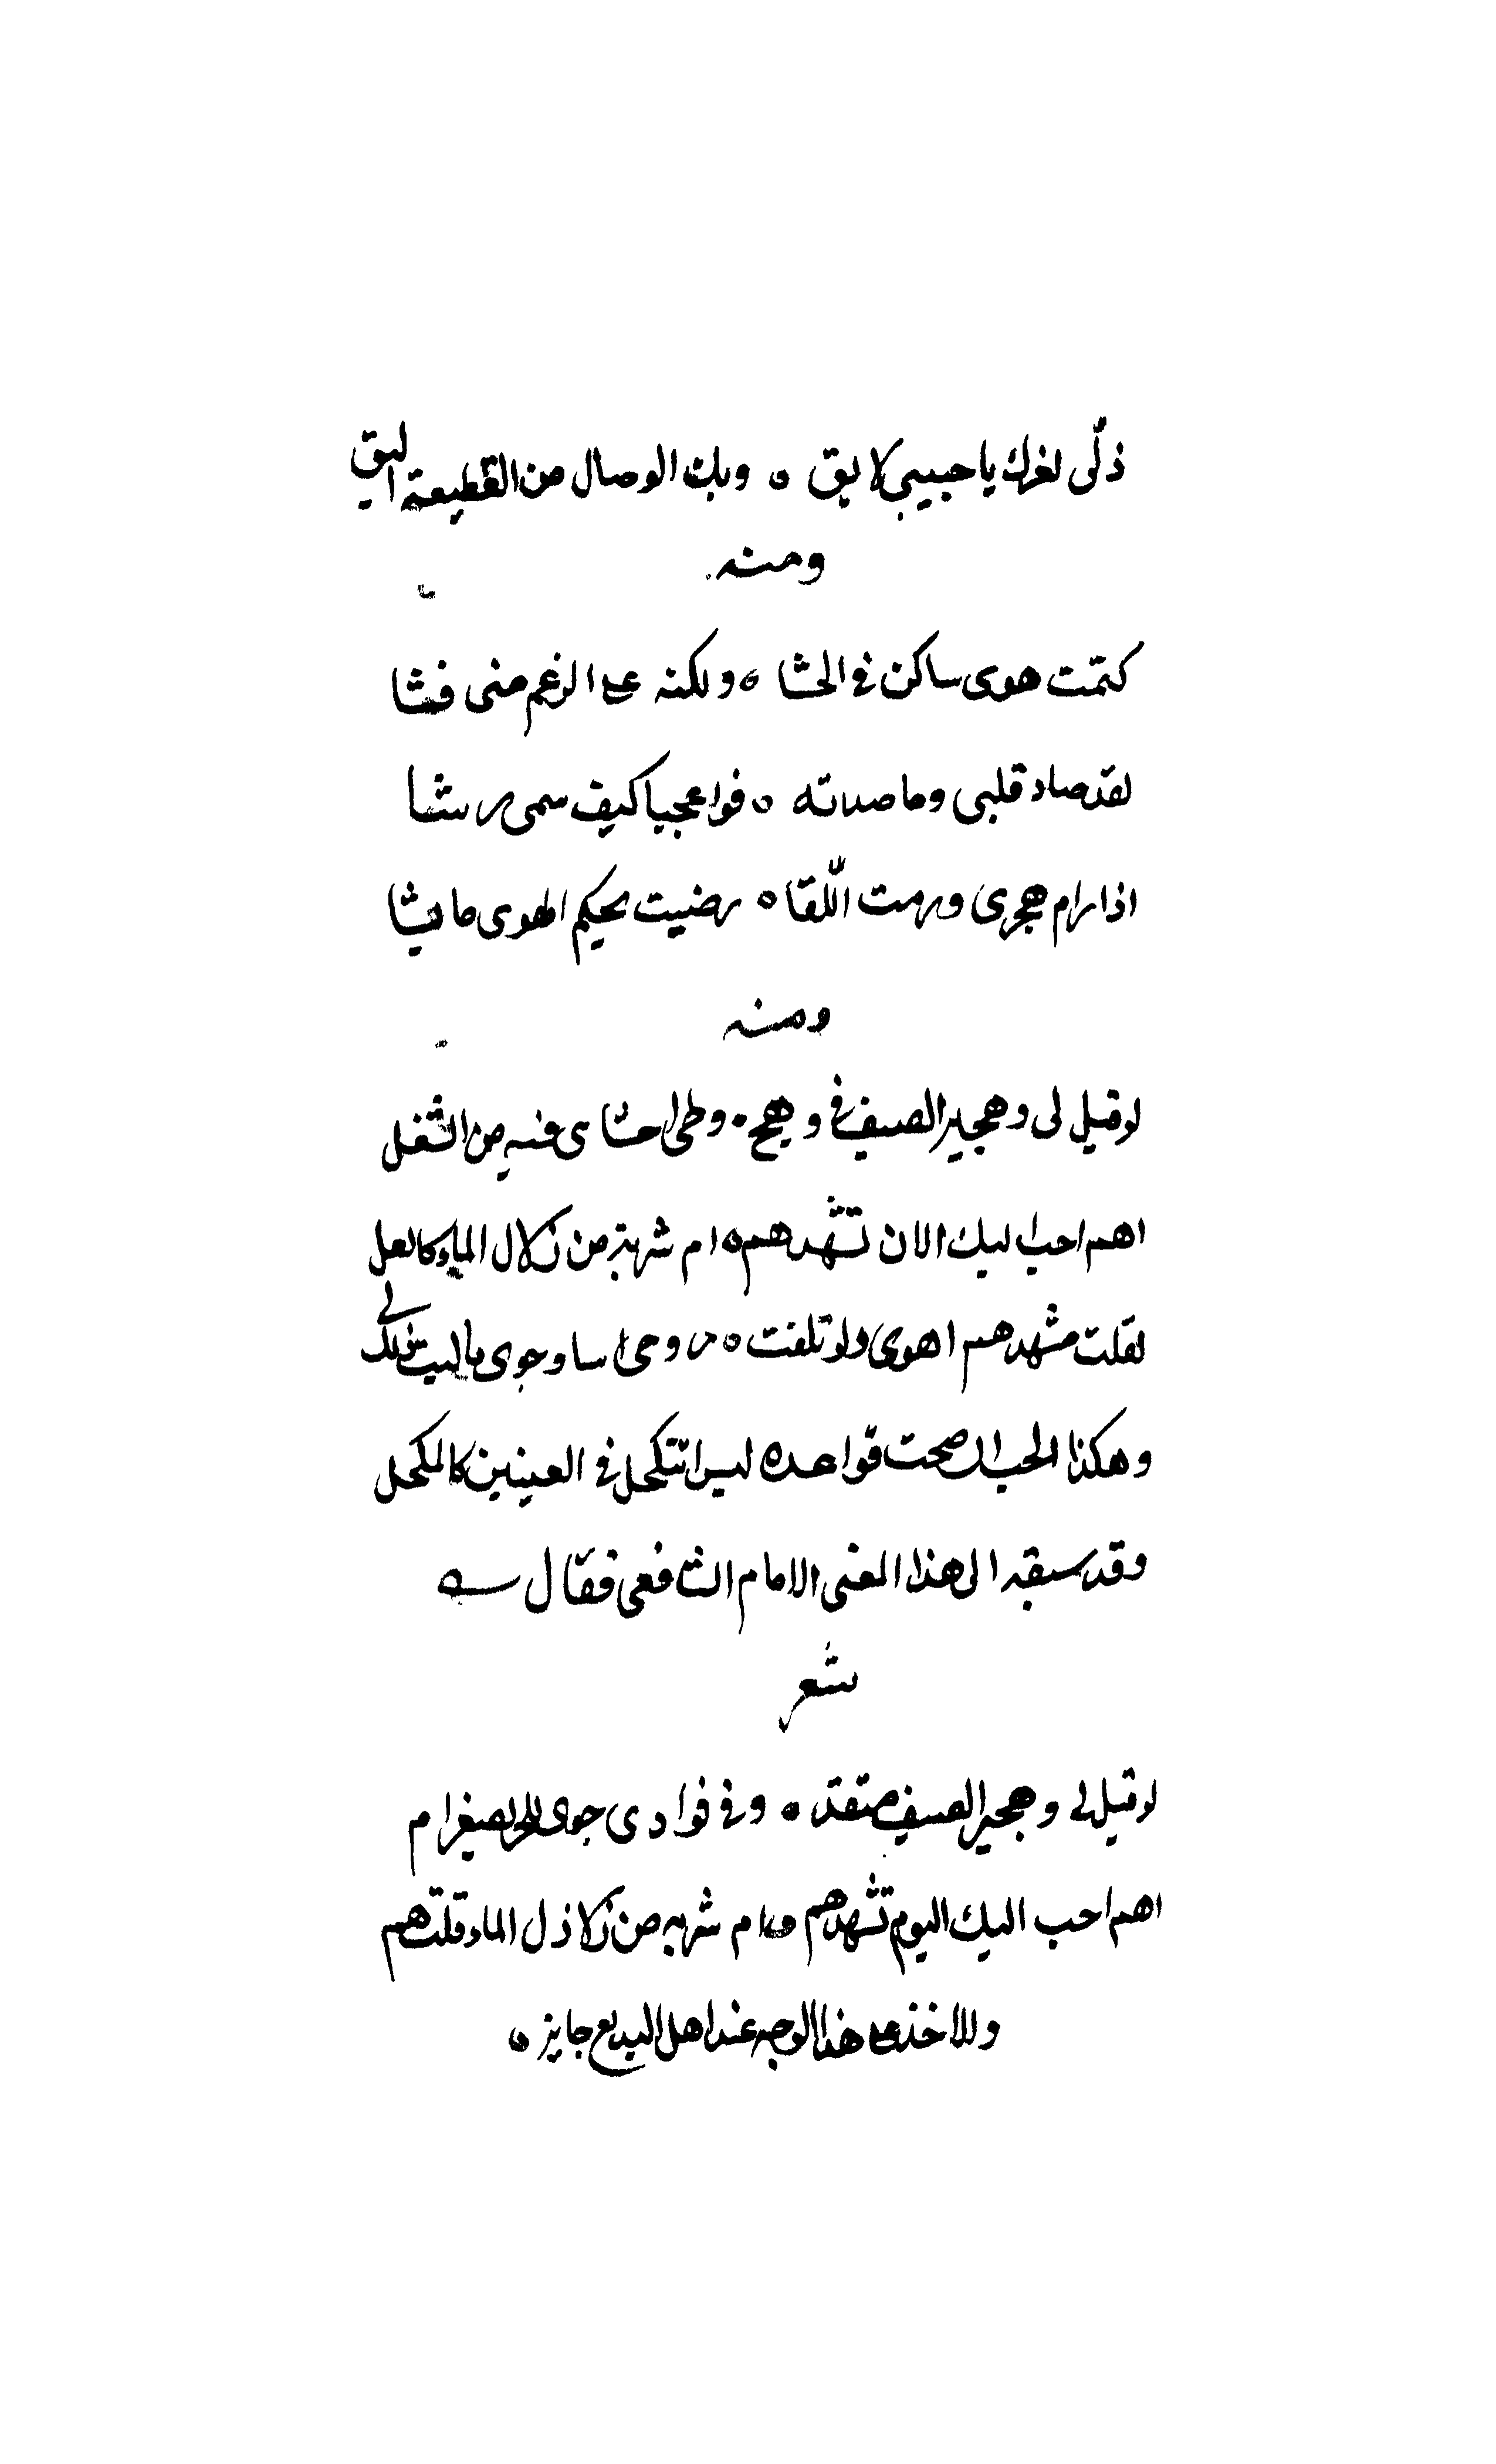 ذلّى لعزك يا حبيبى لايق ه وبك الوصال من القطيعة اليق
ومنه
كتمت هوى ساكن فى الحشا ه ولكنه على الرغم منى فشا
لقد صاد قلبى وما صدته ه فوا عجبا كيف سمى رشا
اذا رام هجرى ورمت اللّقا ه رضيت بحكم الهوى ما يشا
ومنه
لو قيل لى وهجير الصيف فى وهج ه وطى احشاى فيه من الشغل
اهم احب اليك الان تشهدهم ه ام شربة من زلال الماء كالعسل
لقلت مشهدهم اهوى ولو تلفت ه روحى اسا وجوى يا ليت ذلك لى
وهكذا الحب ان صحت قواعده ليس التكحل فى العينين كالكحل
وقد سبقه الى هذا المعنى الامام الشافعى فقال
شعر
لو قيل لى وهجير الصيف متقد ه وفى فوادى جوى للحر يضطرم
اهم احب اليك اليوم تشهدهم ه ام شربه من زلال الماء قلت هم
والاخذ على هذا الوجه عند اهل البديع جايز ه